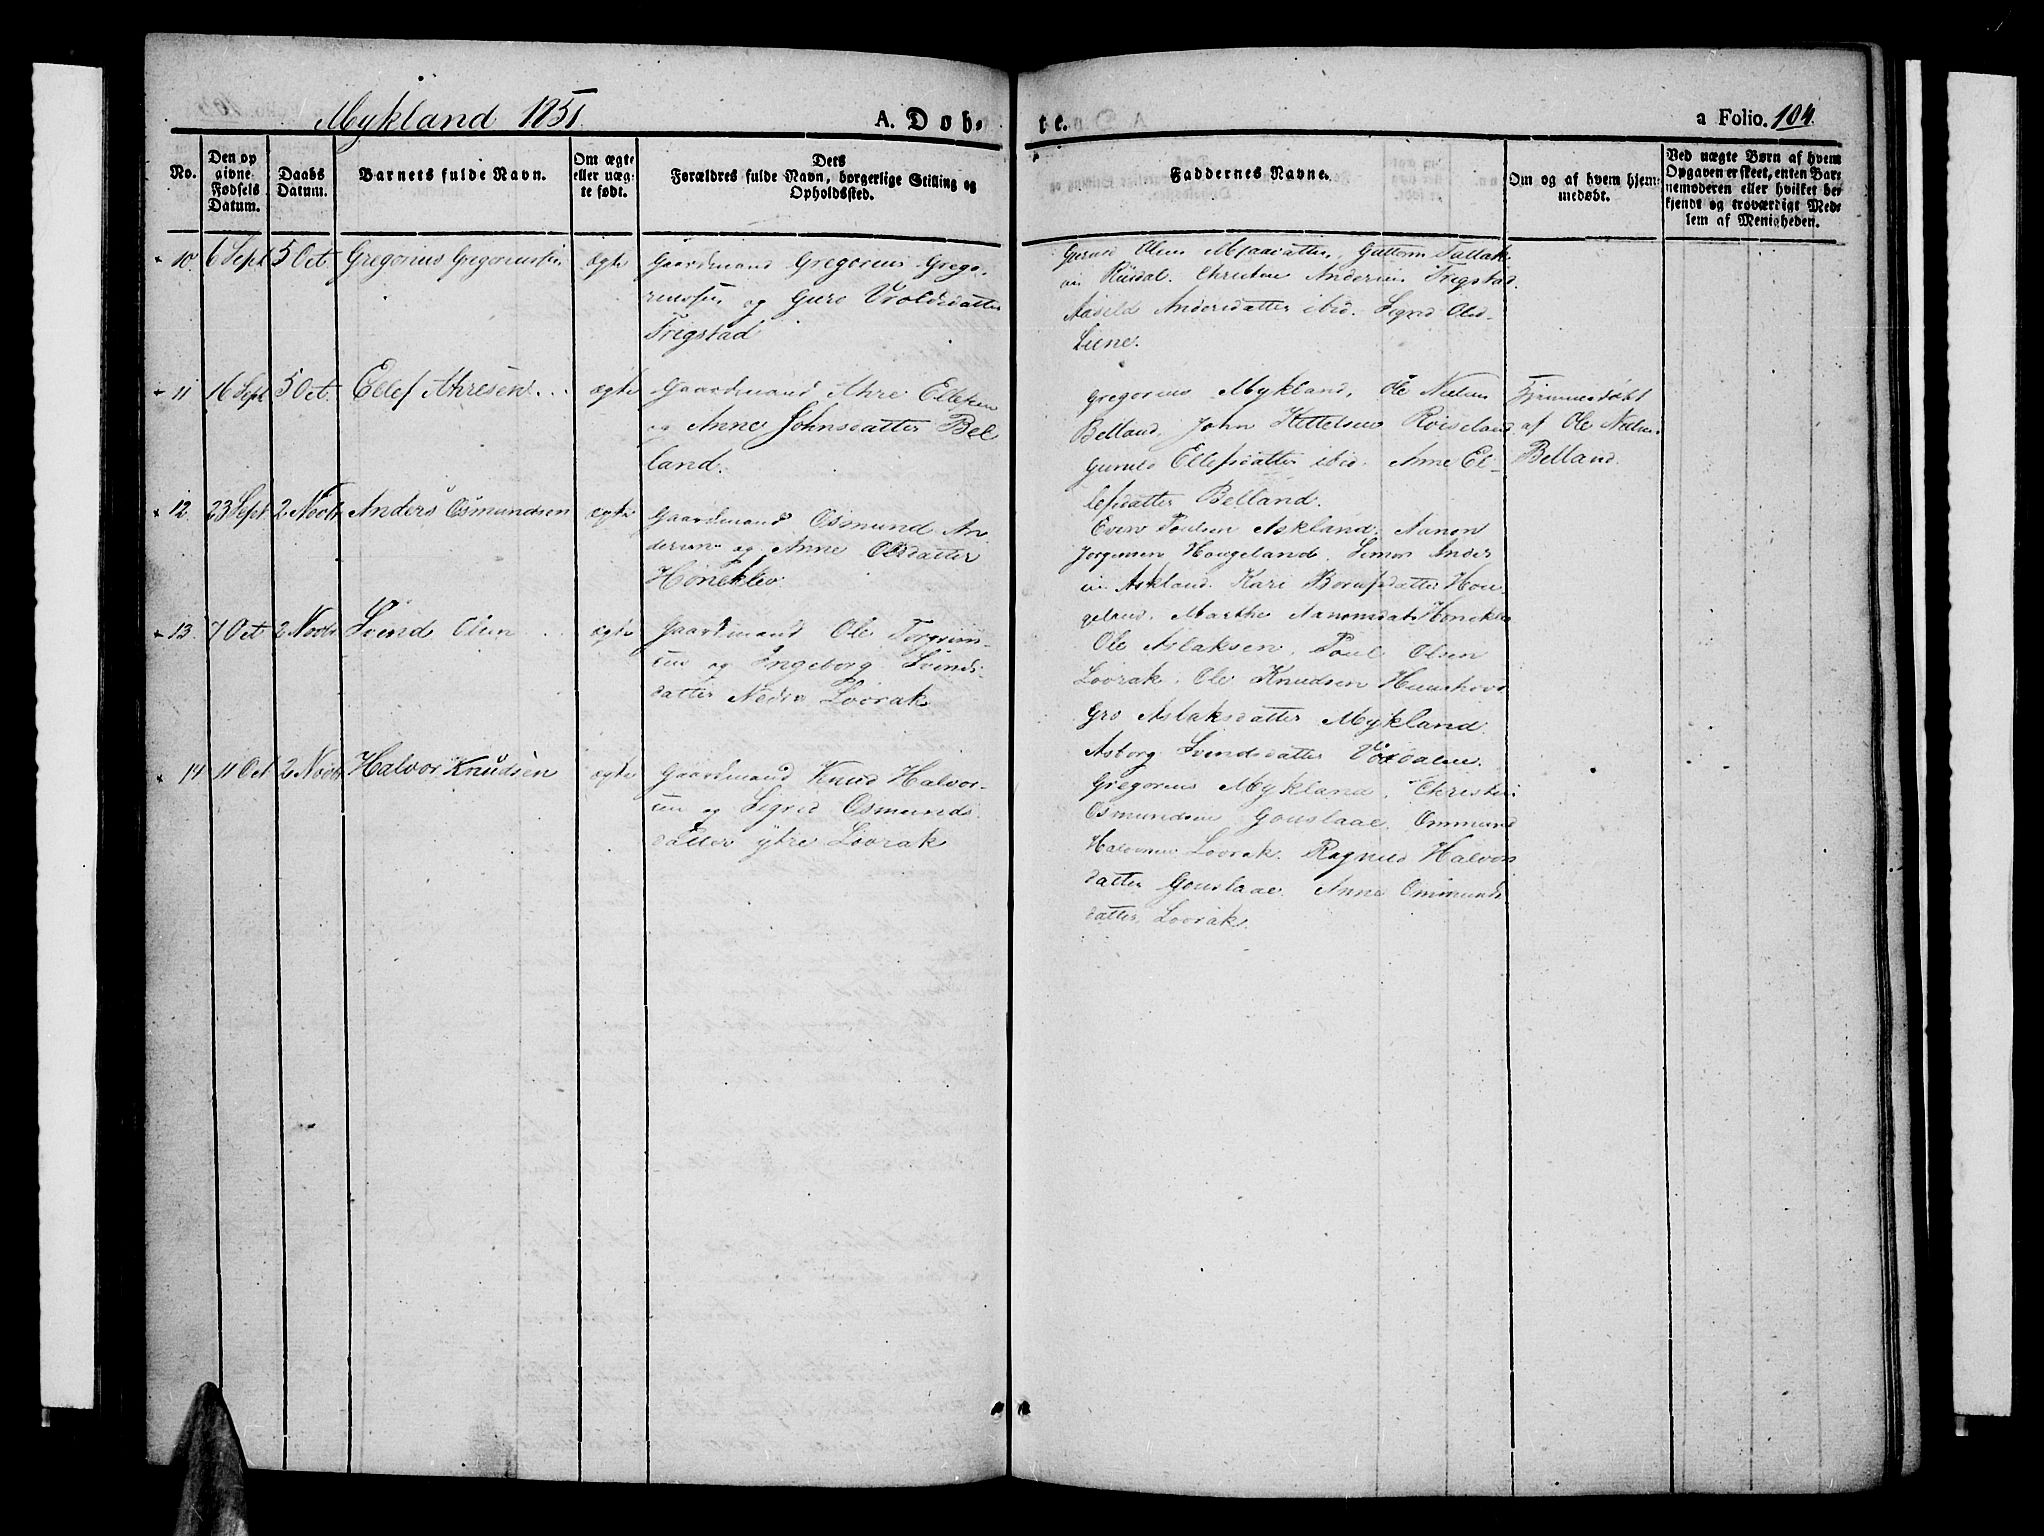 Mykland 1851.
A. Døb-
te.
a Folio. 104.
No.
Den op
givne
Fødsels
Datum.
Daabs
Datum.
Barnets fulde Navn.
Om ægte
eller uæg-
te født.
Dets
Forældres fulde Navn, borgerlige Stilling og
Opholdssted.
Faddernes Navne.
Om og af hvem hjem-
medøbt.
Ved uægte Børn af hvem
Opgaven er skeet, enten Bar-
nemoderen eller hvilket be-
kjendt og troværdigt Med-
lem af Menigheden.
10. 6 Sept 5 Oct. Gregorius Gregoriussen ægte Gaardmand Gregorius Grego-
riussen og Guro Vroldsdatter
Tregstad
Olsen Guttorm Tallak-
Risdal. Christen Andersen Tregstad.
Aasild Andersdatter ibid. Sigrid Ols-
Liene.
11 16 Sept 5 Oct. Ellef Ahresen ægte Gaardmand Ahre Ellefsen
og Anne Johnsdatter Bel
land.
Gregorius Mykland, Ole Nielsen
Belland, John Kittelsen Røiseland
Gunild Ellefsdatter ibid. Anne El-
lefsdatter Belland.
Hjemmedøbt
af Ole Nielsen
Belland.
12. 23 Sept. 2 Novbr Anders Osmundsen ægte Gaardmand Osmund An-
dersen og Anne Olsdatter
Høneklev.
Even Poulsen Askland. Aanon
Jørgensen Hougeland. Simon Ander
sen Askland. Kari Hou-
geland, Marthe Aanonsdat. Høneklev
13. 7 Oct. 2 Novbr Svend Olsen ægte Gaardmand Ole Torgrim-
sen og Ingeborg Svends-
datter Nedre Lovrak
Ole Aslaksen, Poul Olsen
Lovrak, Ole Knudsen
Gro Aslaksdatter Mykland.
Asborg Svendsdatter
14 11 Oct 2 Novbr Halvor Knudsen ægte Gaardmand Knud Halvor-
sen og Sigrid Osmunds-
datter ytre Lovrak
Gregorius Mykland, Christen
Osmundsen Gouslaae. Ommund
Halvorsen Lovrak. Ragnild Halvors
datter Gouslaae. Anne Ommunds
datter, Lovrak.